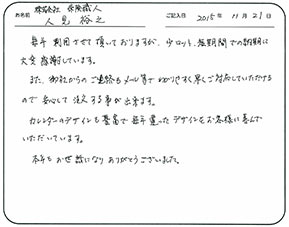 お名前 株式会社 保険職人 人見 裕之 ご記入日 2015年 11月 21日
毎年 利用させて頂いておりますが、少ロット、短期間での納期に
大変 感謝しています。
また、御社からのご連絡もメール等でわかりやすく早くご対応していただける
ので 安心して 注文する事が出来ます。
カレンダーのデザインも豊富で 毎年違ったデザインをお客様に喜んで
いただいています。
本年もお世話になり ありがとうございました。